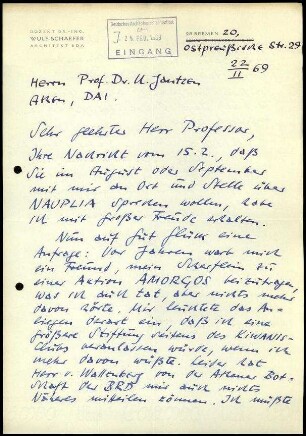 DOZENT DR.-ING.
WULF SCHAEFER
ARCHITEKT BDA
J 25. FEB. 1969
EINGANG
28 BREMEN 20,
Ostpreußische Str. 29
22/II 69
Herrn Prof. Dr. U. Jantzen
Athen, DAI.
Sehr geehrter Herr Professor,
Ihre Nachricht vom 15.2., daß
Sie im August oder September
mit mir an Ort und Stelle über
NAUPLIA sprechen wollen, habe
ich mit großer Freude erhalten.
Nun auf gut Glück eine
Anfrage: Vor Jahren warb mich
ein Freund, mein Scherflein zu
einer Aktion AMORGOS beizutragen,
was ich auch tat, aber nichts mehr
davon hörte. Mir leuchtete das An-
liegen derart ein, daß ich eine
größere Stiftung seitens des KIWANIS-
Clubs veranlassen würde, wenn ich
mehr davon wüßte. Leider hat
Herr v. Wallenberg von der Athener Bot-
schaft der BRD mir auch nichts
Näheres mitteilen können. Ich müßte